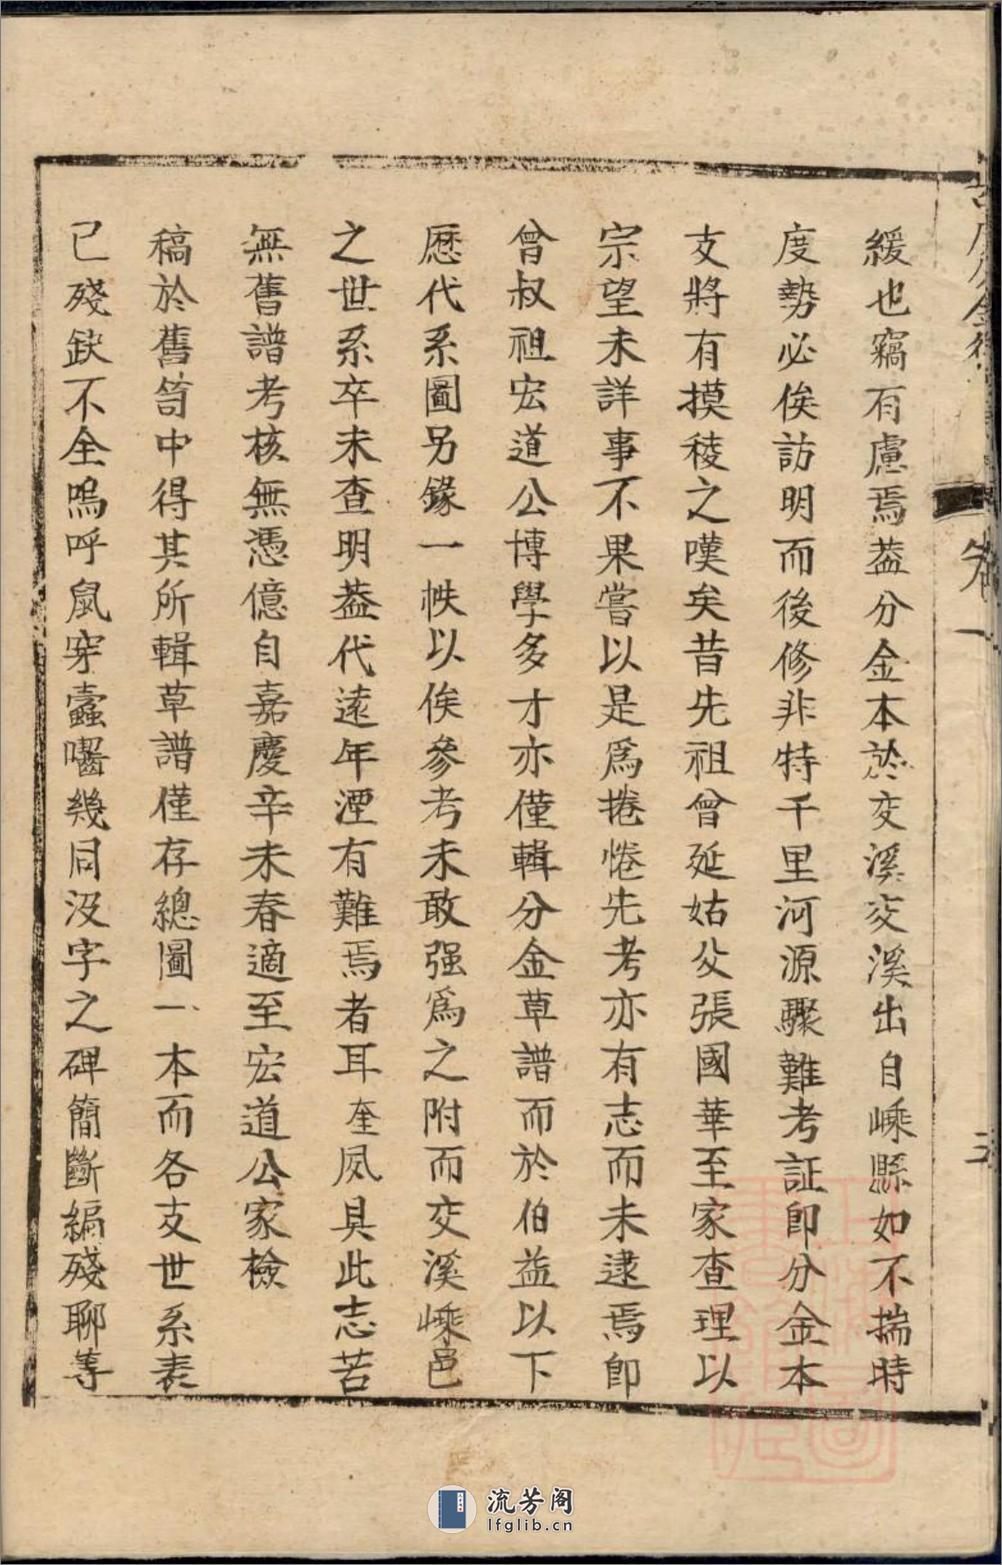 緩也竊有慮焉葢分金本於交溪交溪出自嵊縣如不揣時
度勢必俟訪明而後修非特千里河源驟難考証卽分金本
支將有摸稜之嘆矣昔先祖曾延姑父張國華至家查理以
宗望未詳事不果嘗以是爲捲惓先考亦有志而未逮焉卽
曾叔祖宏道公博學多才亦僅輯分金草譜而於伯益以下
歷代系圖另錄一帙以俟參考未敢强爲之附而交溪嵊邑
之世系卒未查明葢代遠年湮有難焉者耳奎夙具此志苦
無舊譜考核無憑億自嘉慶辛未春適至宏道公家檢
稿於舊笥中得其所輯草譜僅存總圖一本而各支世系表
已殘缺不全嗚呼鼠穿蠹嚙幾同没字之碑簡斷編殘聊等
卷一
流芳阁
lfglib.cn